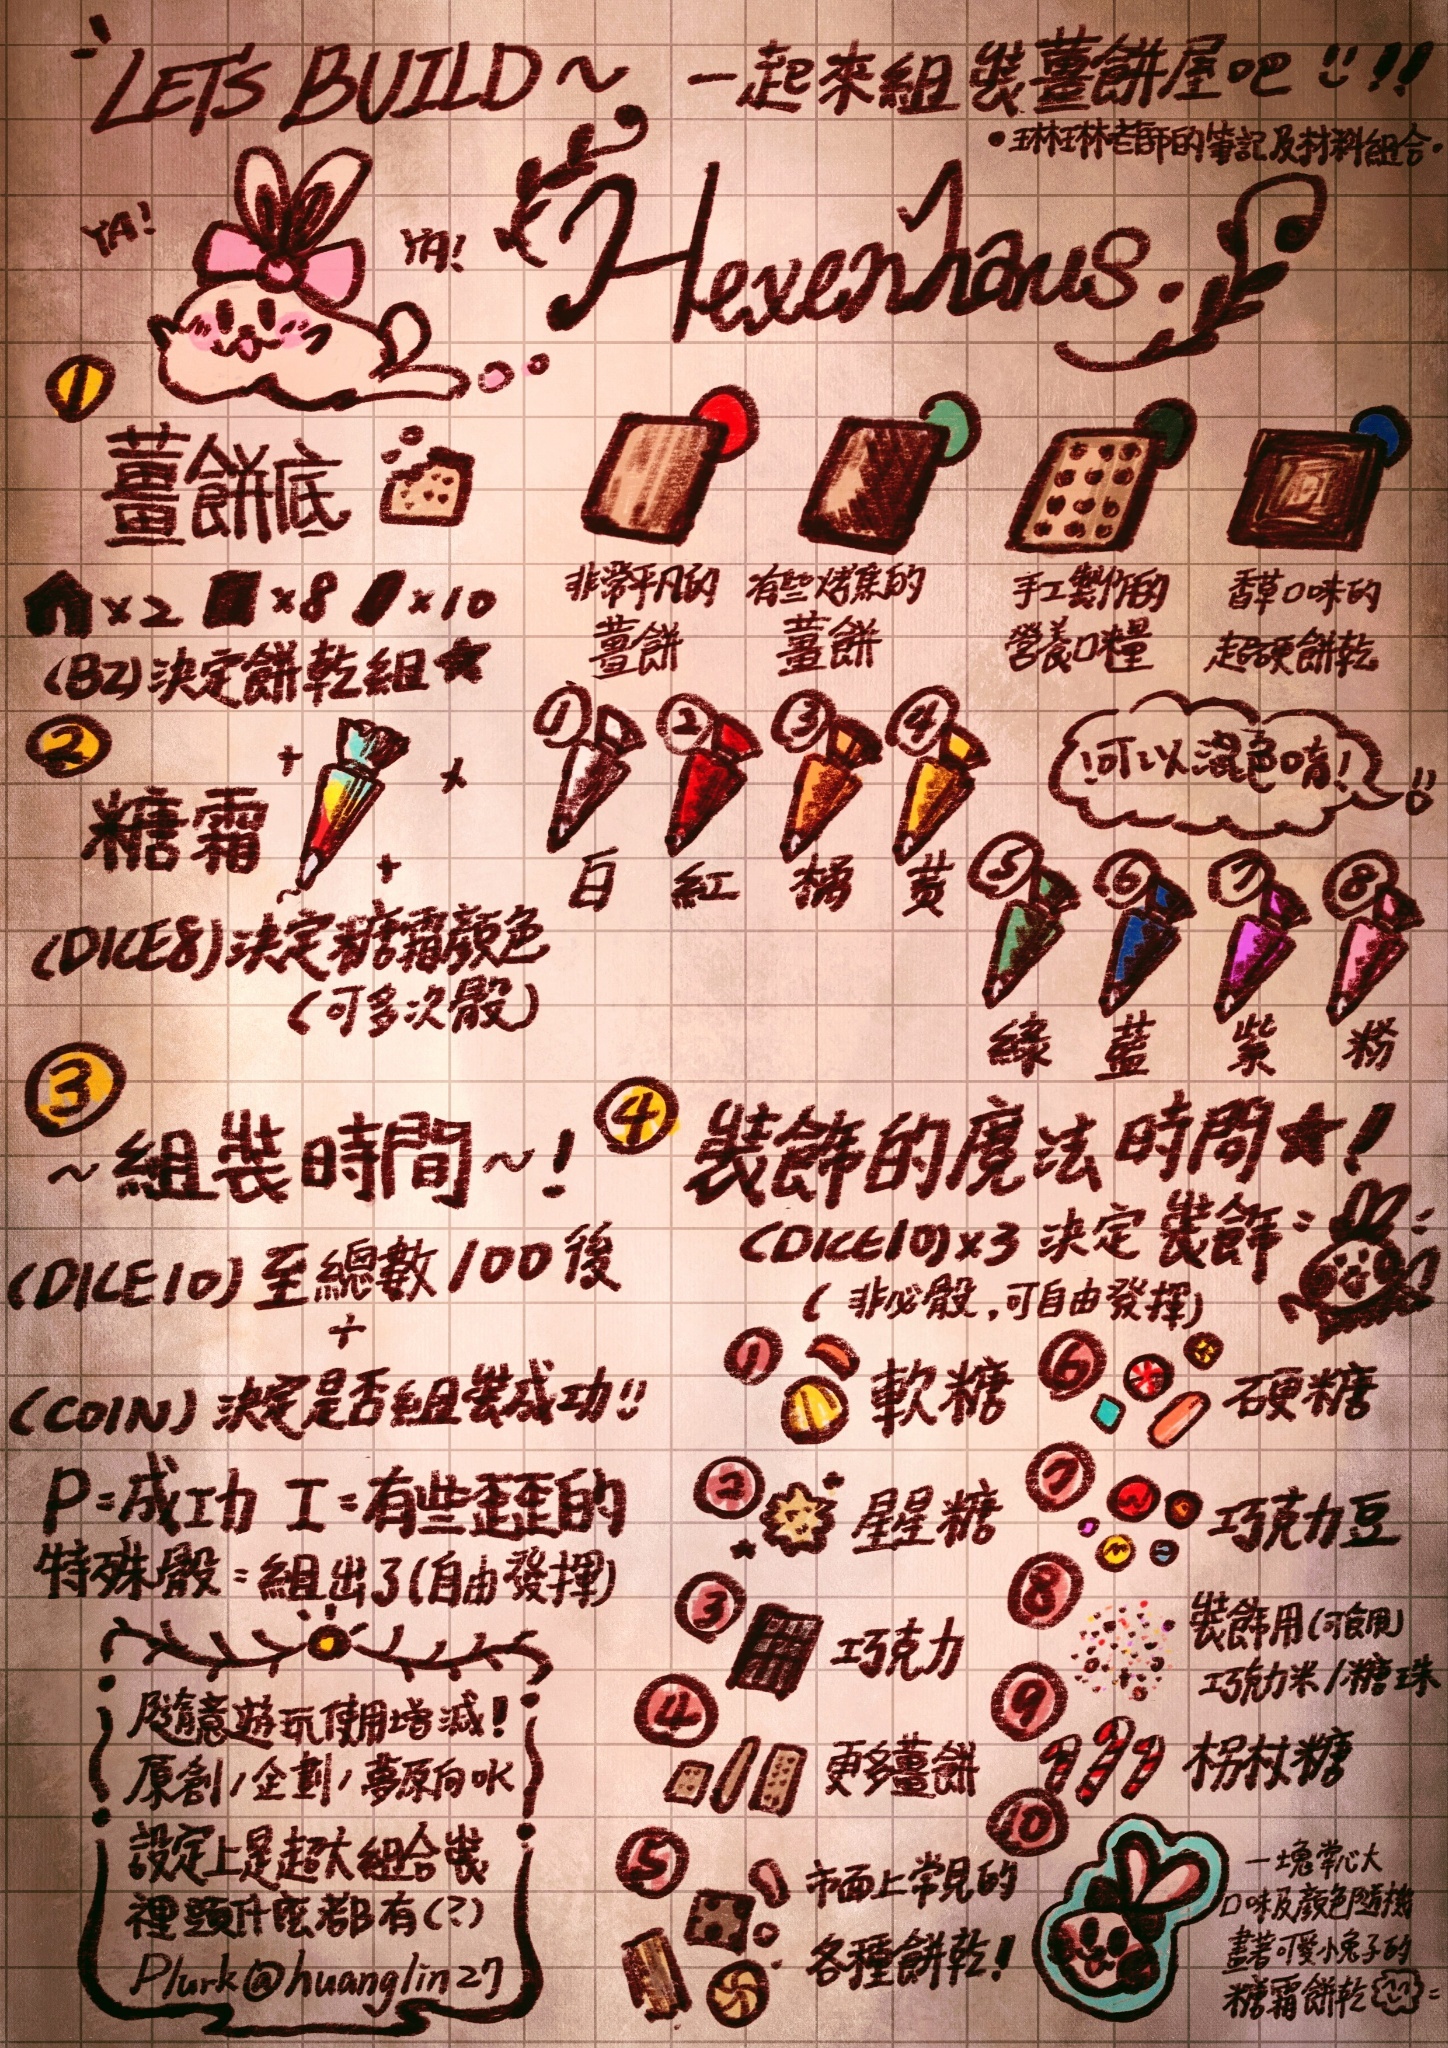 LET'S BUILD~ 一起來組裝薑餅屋吧!!!
•琳琳老師的筆記及材料組合•
YA!
YA!
Hexenhaus.
1
薑餅底
x2 x8 x10
(BZ)決定餅乾組★
非常平凡的
薑餅
有些烤焦的
薑餅
手工製作的
營養口糧
香草口味的
超硬餅乾
2
糖霜
(DICE8)決定糖霜顏色
(可多次骰)
1 白
2 紅
3 橘
4 黃
!可以混色唷!
5 綠
6 藍
7 紫
8 粉
3
~組裝時間~!
(DICE10)至總數100後
+
(COIN)決定是否組裝成功!!
P=成功 I=有些歪歪的
特殊骰=組出了(自由發揮)
4 裝飾的魔法時間★!
(DICE10)x3 決定裝飾
(非必骰,可自由發揮)
1 軟糖
2 星星糖
3 巧克力
4 更多薑餅
5 市面上常見的
各種餅乾!
6 硬糖
7 巧克力豆
8 裝飾用(可食用)
巧克力米/糖珠
9 拐杖糖
10 一塊掌心大
口味及顏色隨機
畫著可愛小兔子的
糖霜餅乾
隨意遊玩使用增減!
原創/企劃/夢原向ok
設定上是超大組合裝
裡頭什麼都有(?)
Plurk@huanglin27